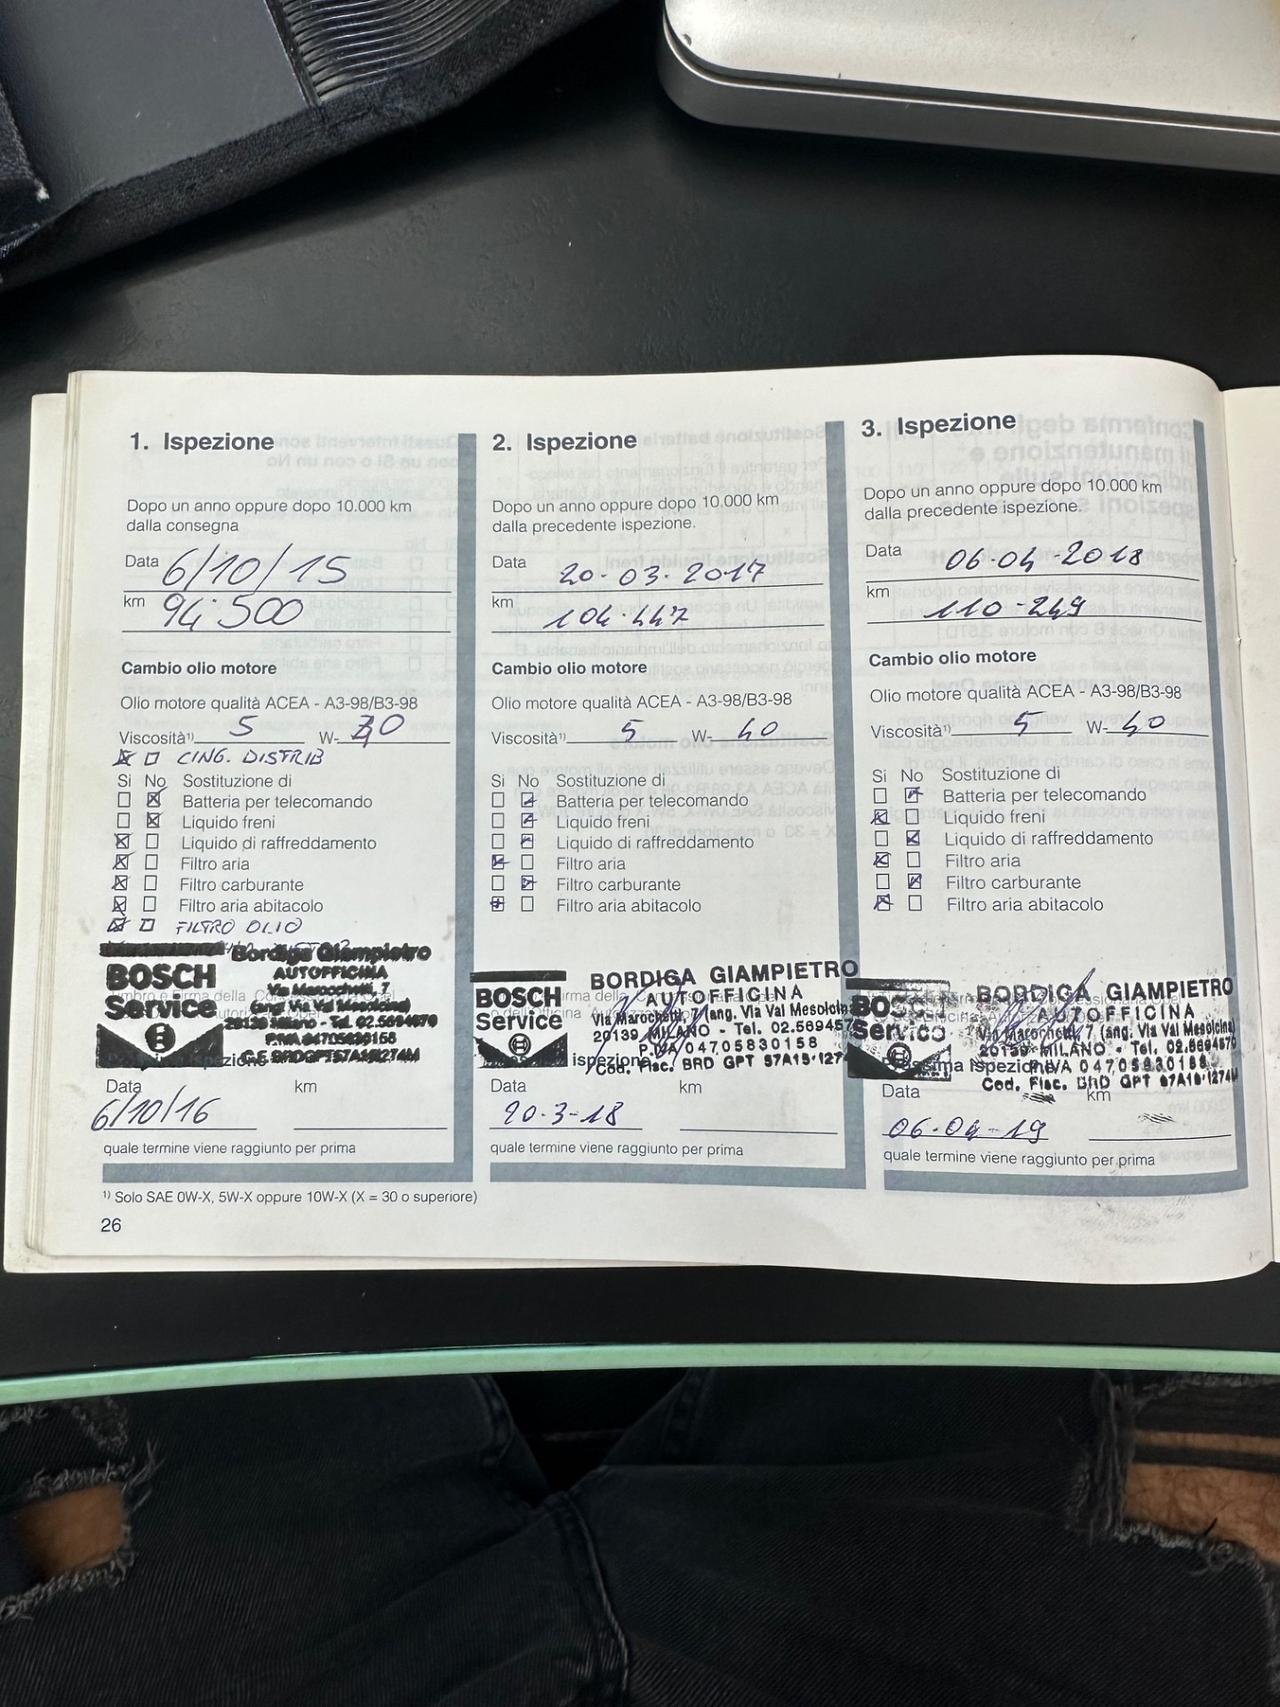 1. Ispezione
Dopo un anno oppure dopo 10.000 km
dalla consegna
Data 6/10/15
km 94.500
Cambio olio motore
Olio motore qualità ACEA - A3-98/B3-98
Viscosità¹⁾ 5 W-
CING. DISTRIB
Si No Sostituzione di
Batteria per telecomando
Liquido freni
Liquido di raffreddamento
Filtro aria
Filtro carburante
Filtro aria abitacolo
FILTRO OLIO
BOSCH
Service
Bordiga Giampietro
AUTOFFICINA
Via Marochetti, 7
(ang. Via Val Mesolcina)
20139 Milano - Tel. 02.5694570
P.IVA 04705830158
Data km
6/10/16
quale termine viene raggiunto per prima
2. Ispezione
Dopo un anno oppure dopo 10.000 km
dalla precedente ispezione.
Data 20.03.2017
km 104.447
Cambio olio motore
Olio motore qualità ACEA - A3-98/B3-98
Viscosità¹⁾ 5 W- 40
Si No Sostituzione di
Batteria per telecomando
Liquido freni
Liquido di raffreddamento
Filtro aria
Filtro carburante
Filtro aria abitacolo
BOSCH
Service
BORDIGA GIAMPIETRO
AUTOFFICINA
Via Marochetti, 7 (ang. Via Val Mesolcina
20139 MILANO - Tel. 02.56945
P.IVA 04705830158
Cod. Fisc. BRD GPT 57A15
ispezione
Data km
20-3-18
quale termine viene raggiunto per prima
3. Ispezione
Dopo un anno oppure dopo 10.000 km
dalla precedente ispezione.
Data 06-04-2018
km 110-249
Cambio olio motore
Olio motore qualità ACEA - A3-98/B3-98
Viscosità¹⁾ 5 W- 40
Si No Sostituzione di
Batteria per telecomando
Liquido freni
Liquido di raffreddamento
Filtro aria
Filtro carburante
Filtro aria abitacolo
BOSCH
Service
BORDIGA GIAMPIETRO
AUTOFFICINA
Via Marochetti, 7 (ang. Via Val Mesolcina)
20139 MILANO - Tel. 02.5694570
P.IVA 04705830158
Cod. Fisc. BRD GPT 57A15 I274M
Data km
06-04-19
quale termine viene raggiunto per prima
¹⁾ Solo SAE 0W-X, 5W-X oppure 10W-X (X = 30 o superiore)
26